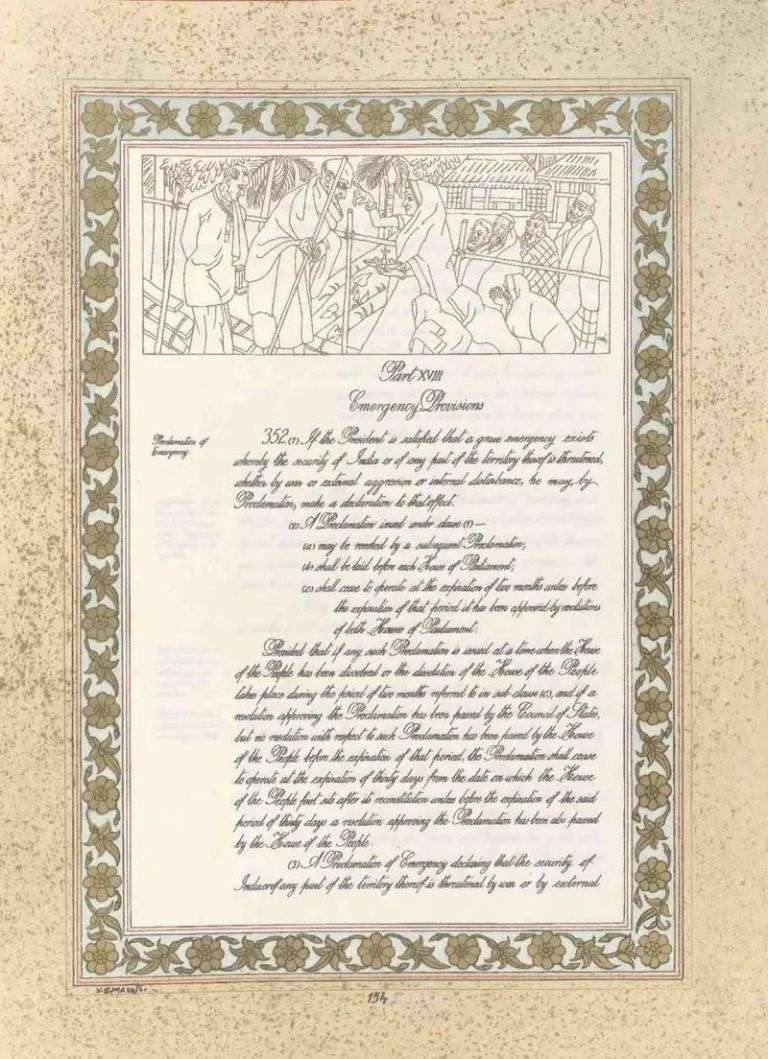 Part XVIII
Emergency Provisions
Proclamation of
Emergency.
352.(1) If the President is satisfied that a grave emergency exists
whereby the security of India or of any part of the territory thereof is threatened,
whether by war or external aggression or internal disturbance, he may, by
Proclamation, make a declaration to that effect.
(2) A Proclamation issued under clause (1) —
(a) may be revoked by a subsequent Proclamation;
(b) shall be laid before each House of Parliament;
(c) shall cease to operate at the expiration of two months unless before
the expiration of that period it has been approved by resolutions
of both Houses of Parliament:
Provided that if any such Proclamation is issued at a time when the House
of the People has been dissolved or the dissolution of the House of the People
takes place during the period of two months referred to in sub-clause (c), and if a
resolution approving the Proclamation has been passed by the Council of States,
but no resolution with respect to such Proclamation has been passed by the House
of the People before the expiration of that period, the Proclamation shall cease
to operate at the expiration of thirty days from the date on which the House
of the People first sits after its reconstitution unless before the expiration of the said
period of thirty days a resolution approving the Proclamation has been also passed
by the House of the People.
(3) A Proclamation of Emergency declaring that the security of
India or of any part of the territory thereof is threatened by war or by external
154